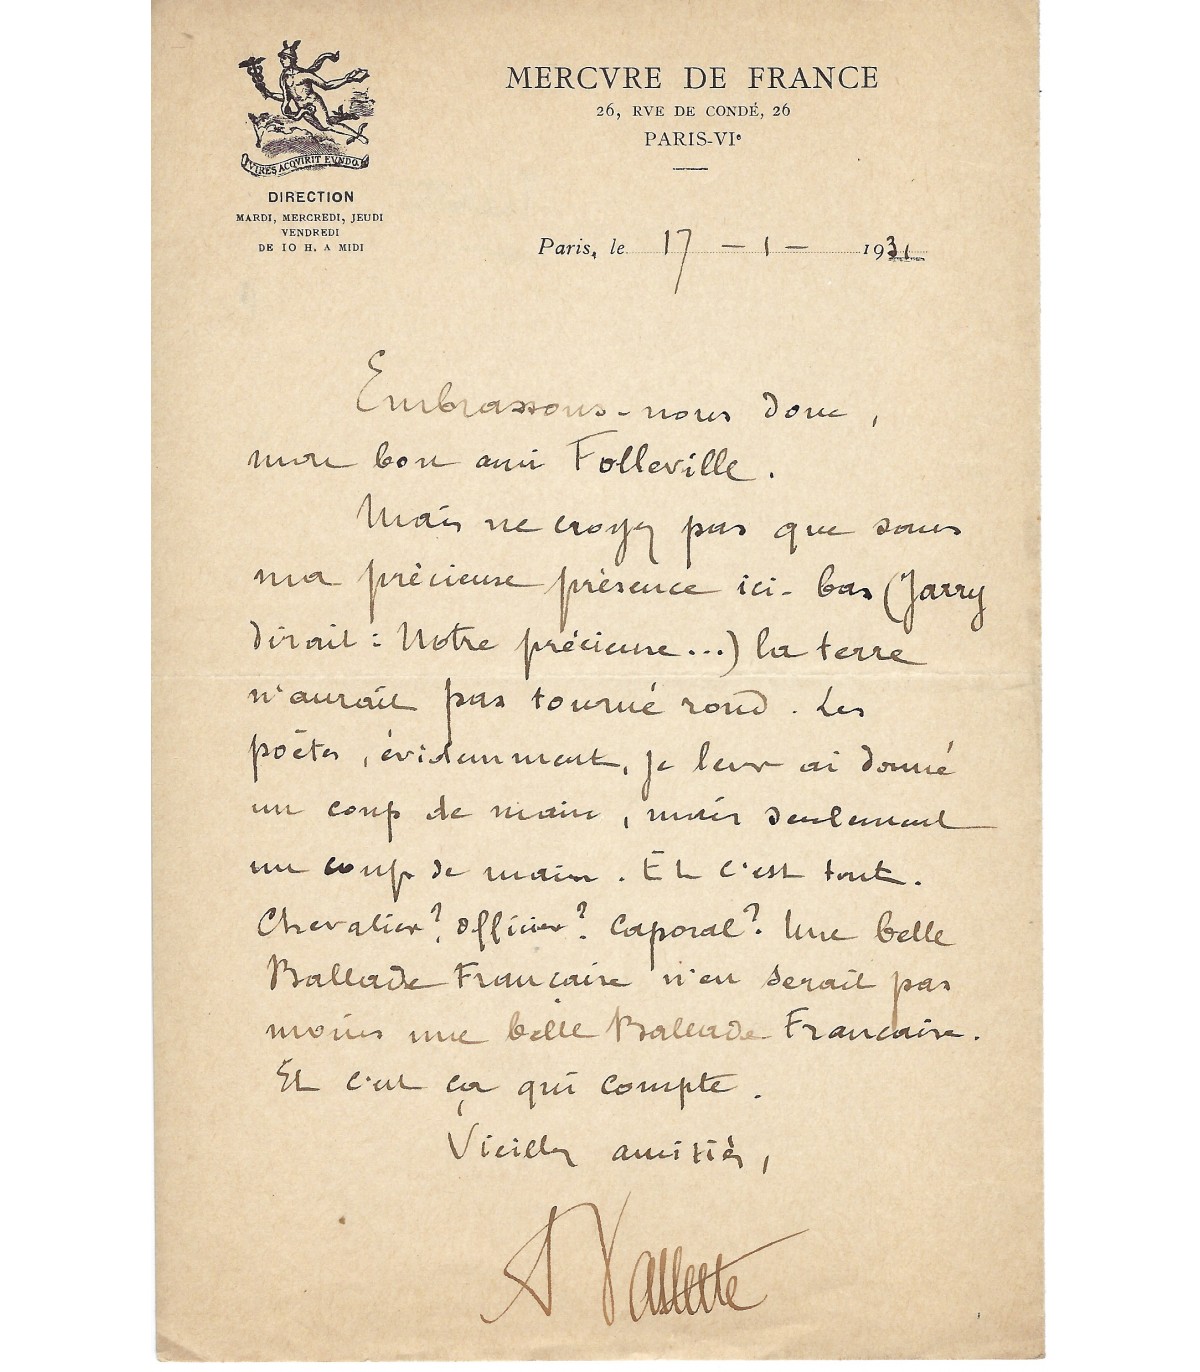 MERCVRE DE FRANCE
26, RVE DE CONDÉ, 26
PARIS-VIe
VIRES ACQVIRIT EVNDO
DIRECTION
MARDI, MERCREDI, JEUDI
VENDREDI
DE 10 H. A MIDI
Paris, le 17 - 1 - 1931
Embrassons-nous donc,
mon bon ami Folleville.
Mais ne croyez pas que sans
ma précieuse présence ici-bas (Jarry
dirait : Notre précieuse...) la terre
n'aurait pas tourné rond. Les
poètes, évidemment, je leur ai donné
un coup de main, mais seulement
un coup de main. Et c'est tout.
Chevalier? Officier? Caporal? Une belle
Ballade Francaise n'en serait pas
moins une belle Ballade Francaise.
Et c'est ça qui compte.
Vieilles amitiés,
A Vallette